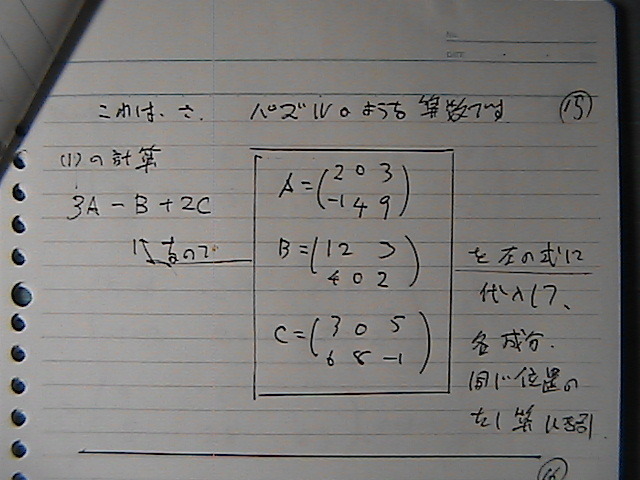 No.
DATE
これは、さ、 パズルのような算数です (15)
(1)の計算
3A - B + 2C
になので
A = (2 0 3
-1 4 9)
B = (1 2 3
4 0 2)
C = (3 0 5
6 8 -1)
を左の式に
代入して、
各成分、
同じ位置の
たし算に
(16)